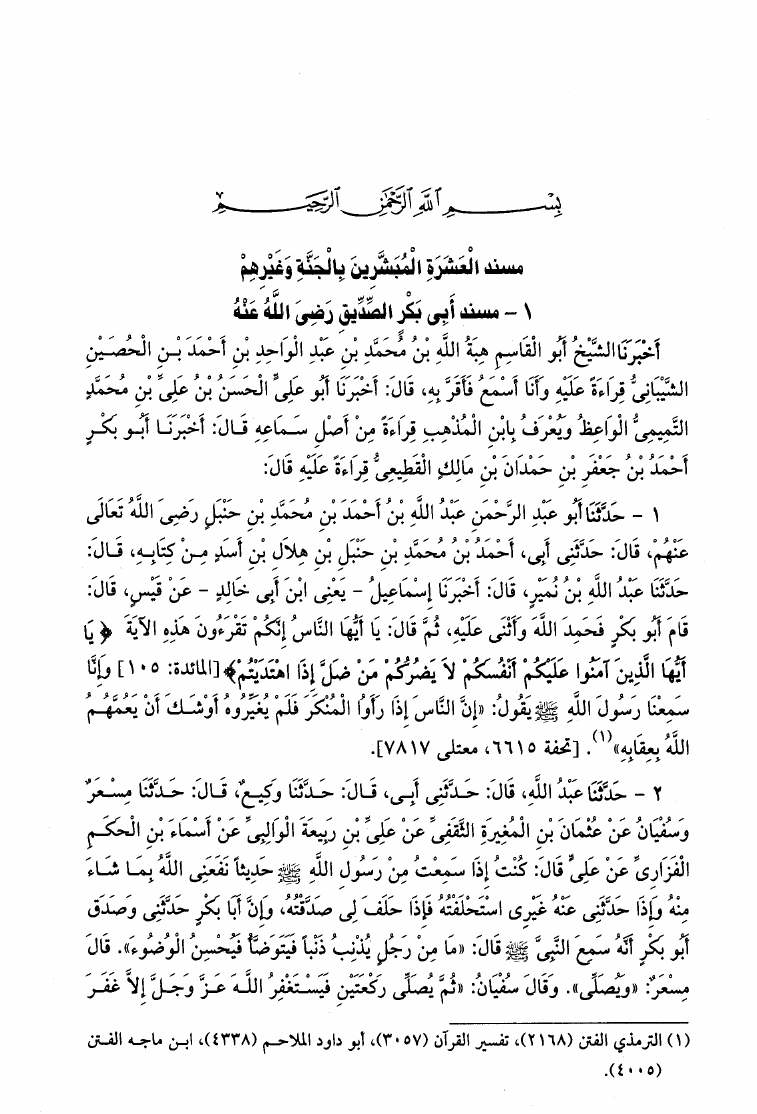 بِسْمِ اللَّهِ الرَّحْمَٰنِ الرَّحِيمِ
مسند الْعَشَرَةِ الْمُبَشَّرِينَ بِالْجَنَّةِ وَغَيْرِهِمْ
١ - مسند أَبِى بَكْرٍ الصِّدِّيقِ رَضِىَ اللَّهُ عَنْهُ
أَخْبَرَنَا الشَّيْخُ أَبُو الْقَاسِمِ هِبَةُ اللَّهِ بْنُ مُحَمَّدِ بْنِ عَبْدِ الْوَاحِدِ بْنِ أَحْمَدَ بْنِ الْحُصَيْنِ
الشَّيْبَانِىُّ قِرَاءَةً عَلَيْهِ وَأَنَا أَسْمَعُ فَأَقَرَّ بِهِ، قَالَ: أَخْبَرَنَا أَبُو عَلِىٍّ الْحَسَنُ بْنُ عَلِىِّ بْنِ مُحَمَّدٍ
التَّمِيمِىُّ الْوَاعِظُ وَيُعْرَفُ بِابْنِ الْمُذْهِبِ قِرَاءَةً مِنْ أَصْلِ سَمَاعِهِ قَالَ: أَخْبَرَنَا أَبُو بَكْرٍ
أَحْمَدُ بْنُ جَعْفَرِ بْنِ حَمْدَانَ بْنِ مَالِكٍ الْقَطِيعِىُّ قِرَاءَةً عَلَيْهِ قَالَ:
١ - حَدَّثَنَا أَبُو عَبْدِ الرَّحْمَنِ عَبْدُ اللَّهِ بْنُ أَحْمَدَ بْنِ مُحَمَّدِ بْنِ حَنْبَلٍ رَضِىَ اللَّهُ تَعَالَى
عَنْهُمْ، قَالَ: حَدَّثَنِى أَبِى، أَحْمَدُ بْنُ مُحَمَّدِ بْنِ حَنْبَلِ بْنِ هِلاَلِ بْنِ أَسَدٍ مِنْ كِتَابِهِ، قَالَ:
حَدَّثَنَا عَبْدُ اللَّهِ بْنُ نُمَيْرٍ، قَالَ: أَخْبَرَنَا إِسْمَاعِيلُ - يَعْنِى ابْنَ أَبِى خَالِدٍ - عَنْ قَيْسٍ، قَالَ:
قَامَ أَبُو بَكْرٍ فَحَمِدَ اللَّهَ وَأَثْنَى عَلَيْهِ، ثُمَّ قَالَ: يَا أَيُّهَا النَّاسُ إِنَّكُمْ تَقْرَءُونَ هَذِهِ الآيَةَ ﴿يَا
أَيُّهَا الَّذِينَ آمَنُوا عَلَيْكُمْ أَنْفُسَكُمْ لاَ يَضُرُّكُمْ مَنْ ضَلَّ إِذَا اهْتَدَيْتُمْ﴾ [المائدة: ١٠٥] وَإِنَّا
سَمِعْنَا رَسُولَ اللَّهِ ﷺ يَقُولُ: «إِنَّ النَّاسَ إِذَا رَأَوُا الْمُنْكَرَ فَلَمْ يُغَيِّرُوهُ أَوْشَكَ أَنْ يَعُمَّهُمُ
اللَّهُ بِعِقَابِهِ»(١). [تحفة ٦٦١٥، معتلى ٧٨١٧].
٢ - حَدَّثَنَا عَبْدُ اللَّهِ، قَالَ: حَدَّثَنِى أَبِى، قَالَ: حَدَّثَنَا وَكِيعٌ، قَالَ: حَدَّثَنَا مِسْعَرٌ
وَسُفْيَانُ عَنْ عُثْمَانَ بْنِ الْمُغِيرَةِ الثَّقَفِىِّ عَنْ عَلِىِّ بْنِ رَبِيعَةَ الْوَالِبِىِّ عَنْ أَسْمَاءَ بْنِ الْحَكَمِ
الْفَزَارِىِّ عَنْ عَلِىٍّ قَالَ: كُنْتُ إِذَا سَمِعْتُ مِنْ رَسُولِ اللَّهِ ﷺ حَدِيثاً نَفَعَنِى اللَّهُ بِمَا شَاءَ
مِنْهُ وَإِذَا حَدَّثَنِى عَنْهُ غَيْرِى اسْتَحْلَفْتُهُ فَإِذَا حَلَفَ لِى صَدَّقْتُهُ، وَإِنَّ أَبَا بَكْرٍ حَدَّثَنِى وَصَدَقَ
أَبُو بَكْرٍ أَنَّهُ سَمِعَ النَّبِىَّ ﷺ قَالَ: «مَا مِنْ رَجُلٍ يُذْنِبُ ذَنْباً فَيَتَوَضَّأُ فَيُحْسِنُ الْوُضُوءَ». قَالَ
مِسْعَرٌ: «وَيُصَلِّى». وَقَالَ سُفْيَانُ: «ثُمَّ يُصَلِّى رَكْعَتَيْنِ فَيَسْتَغْفِرُ اللَّهَ عَزَّ وَجَلَّ إِلاَّ غَفَرَ
(١) الترمذي الفتن (٢١٦٨)، تفسير القرآن (٣٠٥٧)، أبو داود الملاحم (٤٣٣٨)، ابن ماجه الفتن
(٤٠٠٥).